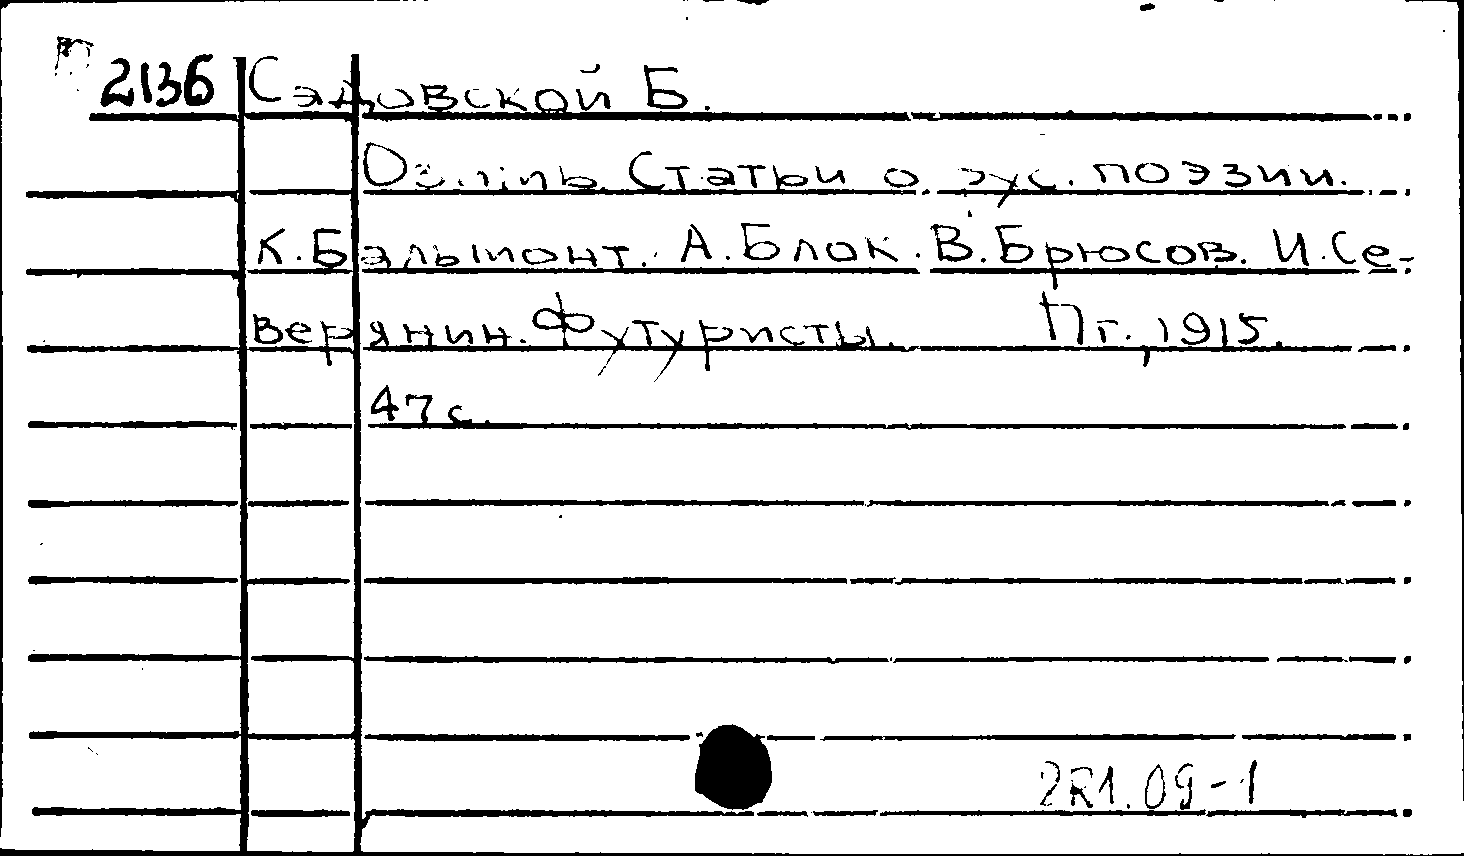 2136 Садовской Б.
Озимь. Статьи о рус. поэзии.
К. Бальмонт. А. Блок. В. Брюсов. И. Се-
верянин. Футуристы. Пг., 1915.
47 с.
2R1.09-1